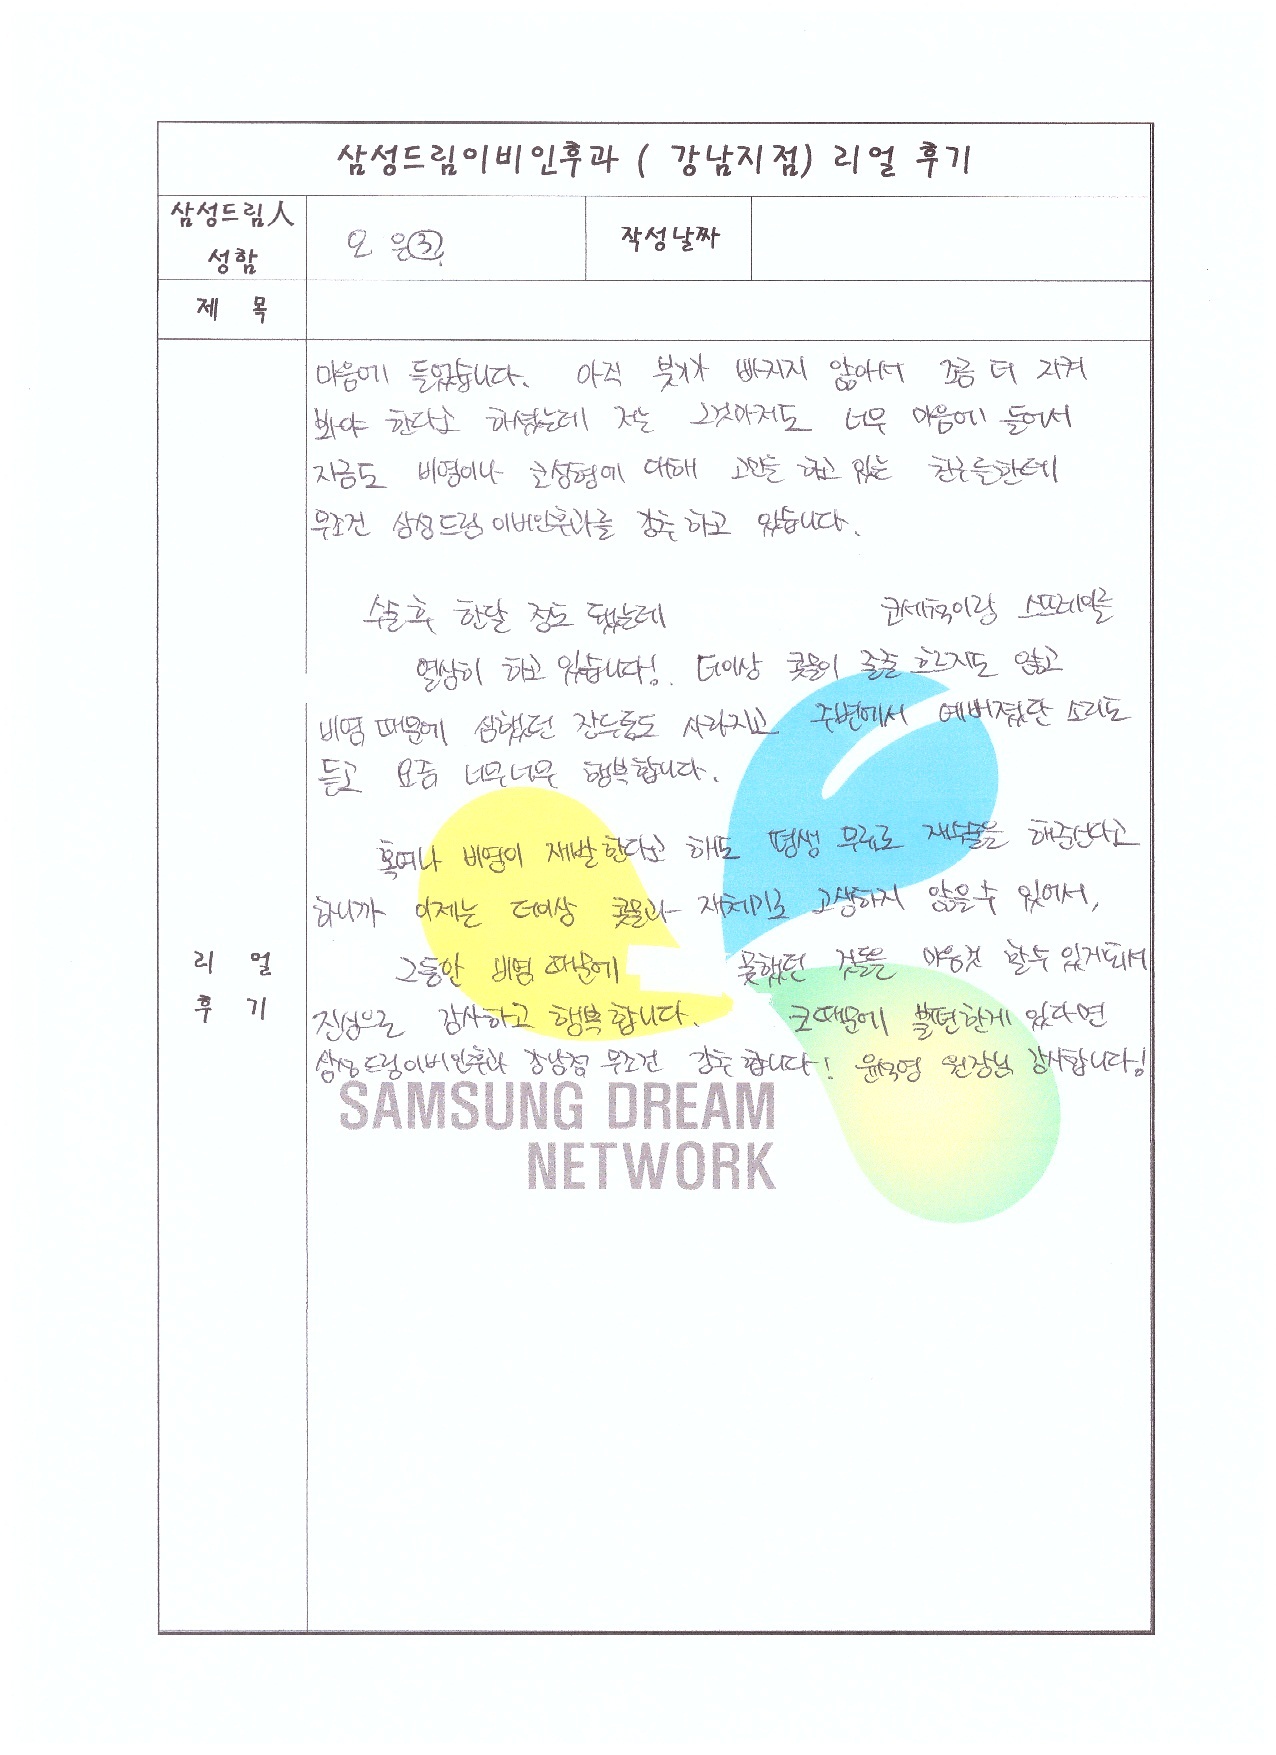 삼성드림이비인후과 ( 강남지점) 리얼 후기
삼성드림人
성함
오 은③
작성날짜
제 목
마음에 들었습니다. 아직 붓기가 빠지지 않아서 조금 더 지켜
봐야 한다고 하셨는데 저는 그것마저도 너무 마음에 들어서
지금도 비염이나 코성형에 대해 고민을 하고 있는 친구들한테
무조건 삼성드림이비인후과를 강추하고 있습니다.
수술 후 한달 정도 됐는데 코세척이랑 스프레이를
열심히 하고 있습니다! 더이상 콧물이 줄줄 흐르지도 않고
비염 때문에 심했던 잔두통도 사라지고 주변에서 예뻐졌단 소리도
듣고 요즘 너무너무 행복합니다.
혹여나 비염이 재발한다고 해도 평생 무료로 재수술을 해준다고
하니까 이제는 더이상 콧물과 재채기로 고생하지 않을수 있어서,
그동안 비염 때문에 못했던 것들을 마음껏 할수 있게되서
진심으로 감사하고 행복합니다. 코때문에 불편한게 있다면
삼성드림이비인후과 강남점 무조건 강추합니다! 원장님 감사합니다!
리 얼
후 기
SAMSUNG DREAM
NETWORK